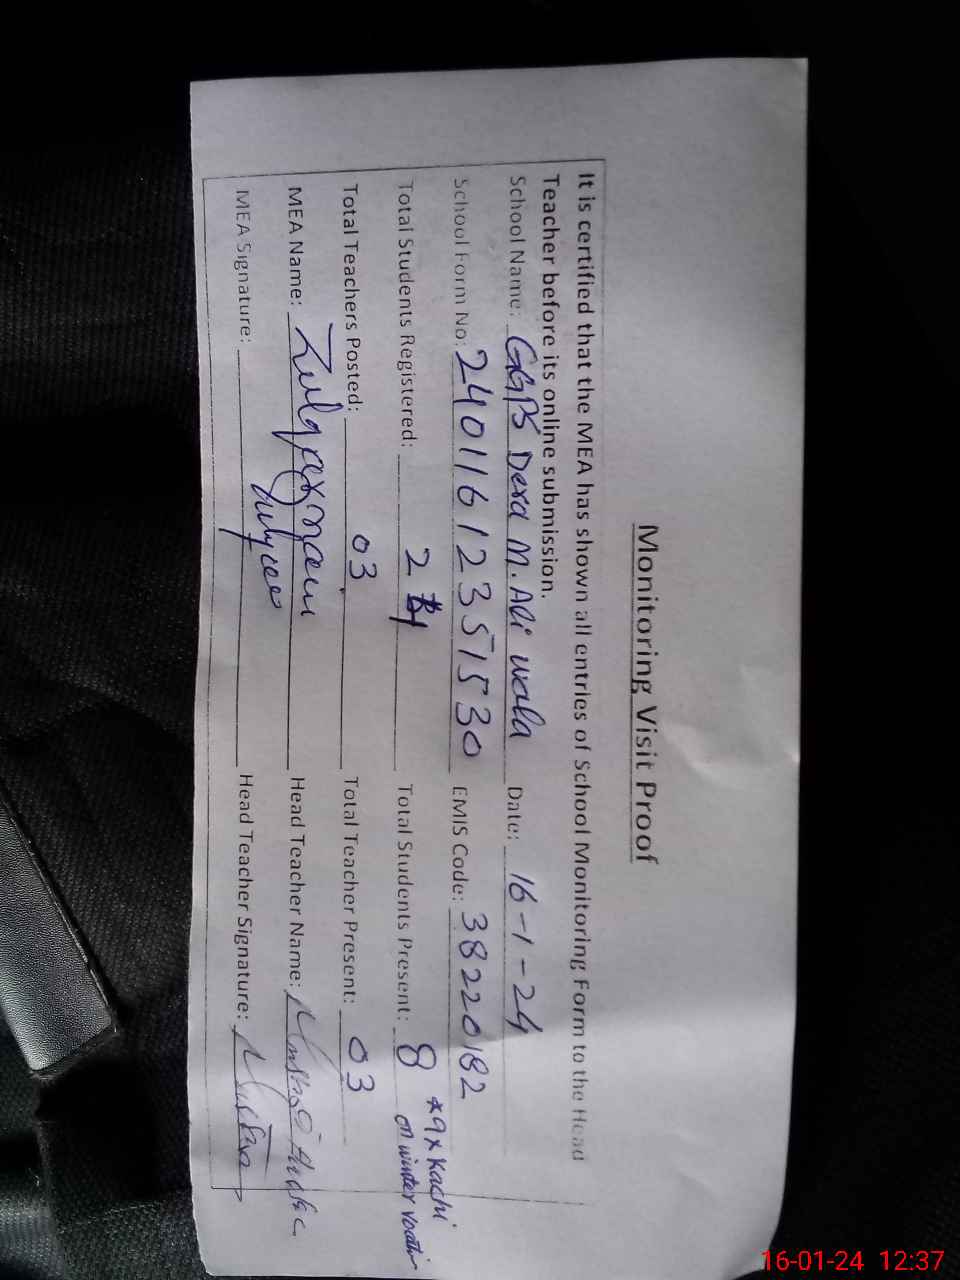 Monitoring Visit Proof
It is certified that the MEA has shown all entries of School Monitoring Form to the Head
Teacher before its online submission.
School Name: GGPS Dera M. Ali wala Date: 16-1-24
School Form No: 24011612351530 EMIS Code: 38220182
Total Students Registered: 2 Total Students Present: 8 *9x Kachi
on winter
Total Teachers Posted: 03 Total Teacher Present: 03
MEA Name: Zulqarnain Head Teacher Name:
MEA Signature: Head Teacher Signature:
16-01-24 12:37